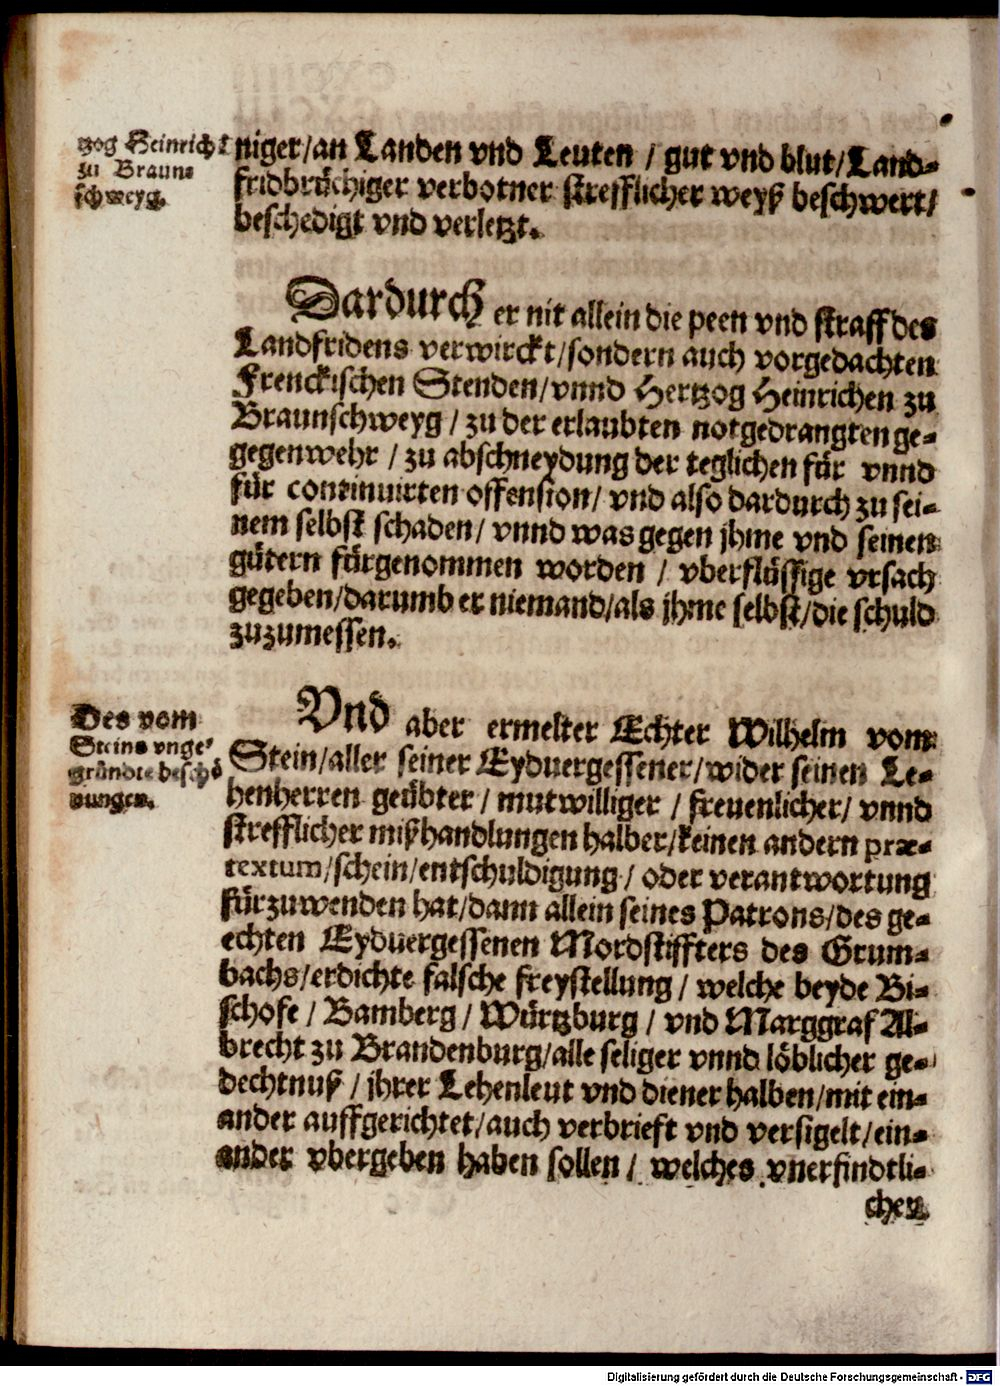 tzog Heinrich
zu Braun⸗
schweyg.
niger/an Landen vnd Leuten / gut vnd blut/Land⸗
fridbrüchiger verbotner strefflicher weyß beschwert/
beschedigt vnd verletzt.
Dardurch er nit allein die peen vnd straff des
Landfridens verwirckt/sondern auch vorgedachten
Frenckischen Stenden/vnnd Hertzog Heinrichen zu
Braunschweyg / zu der erlaubten notgedrangten ge⸗
gegenwehr / zu abschneydung der teglichen für vnnd
für continuirten offension/ vnd also dardurch zu sei⸗
nem selbst schaden/ vnnd was gegen jhme vnd seinen
gütern fürgenommen worden / vberflüssige vrsach
gegeben/darumb er niemand/als jhme selbst/die schuld
zuzumessen.
Des vom
Steins vnge⸗
gründte beschö
nungen.
Vnd aber ermelter Echter Wilhelm vom
Stein/aller seiner Eyduergessener/wider seinen Le⸗
henherren geübter / mutwilliger / freuenlicher/ vnnd
strefflicher mißhandlungen halber/keinen andern præ⸗
textum/schein/entschuldigung / oder verantwortung
fürzuwenden hat/dann allein seines Patrons/des ge⸗
echten Eyduergessenen Mordstiffters des Grum⸗
bachs/erdichte falsche freystellung / welche beyde Bi⸗
schofe / Bamberg / Würtzburg / vnd Marggraf Al⸗
brecht zu Brandenburg/alle seliger vnnd löblicher ge⸗
dechtnuß / jhrer Lehenleut vnd diener halben/mit ein⸗
ander auffgerichtet/auch verbrieft vnd versigelt/ein⸗
ander vbergeben haben sollen / welches vnerfindtli⸗
chen
Digitalisierung gefördert durch die Deutsche Forschungsgemeinschaft - DFG